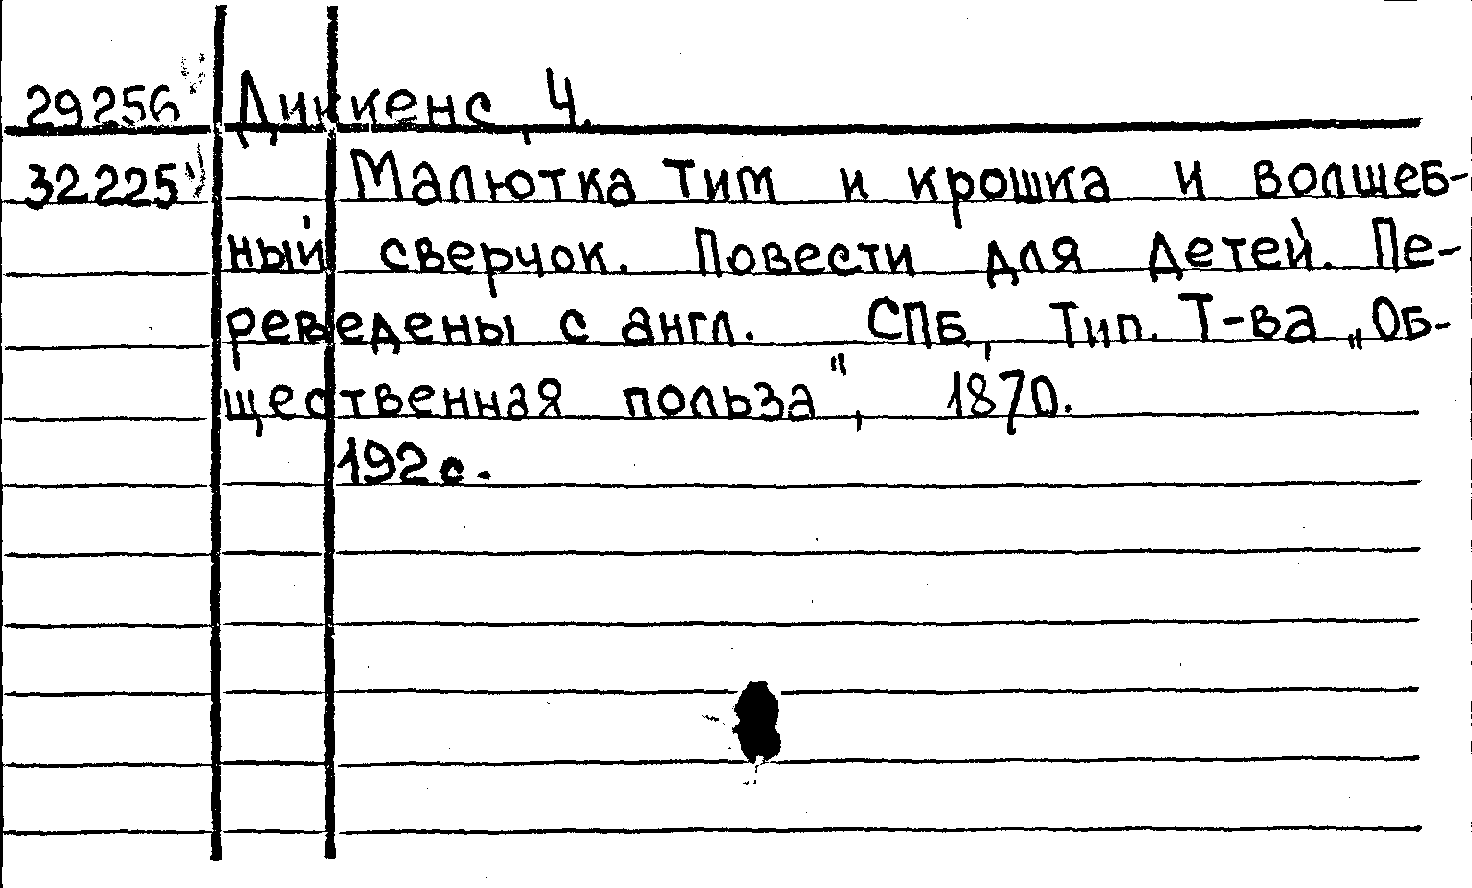 29256 Диккенс, Ч.
32225 Малютка Тим и крошка и волшеб-
ный сверчок. Повести для детей. Пе-
реведены с англ. СПБ, Тип. Т-ва „Об-
щественная польза", 1870.
192 с.